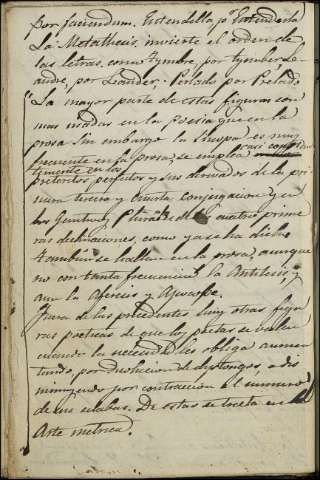 por faciendum. Entendella p.r Entenderla
La Metathesis, invierte el orden de
las letras, como Tymbre, por tymber, Le-
andre, por Leander; Perlado por Prelado.
La mayor parte de estas figuras son
mas usadas en la Poesia que en la
prosa. Sin embargo la Sincopa es muy
frecuente en la prosa, se emplea casi
timente en los
preteritos perfectos y sus derivados de la pri-
mera tercia y cuarta conjugacion y en
los Genitivos de las cuatro prime-
ras declinaciones, como ya se ha dicho.
tambien se hallan en la prosa, aunque
no con tanta frecuencia la Antitesis, y
aun la Aferesis y Apocope.
Fuera de las precedentes hay otras figu-
ras poeticas de que los poetas se valen
cuando la necesidad les obliga aumen-
tando, por disolucion de dyptongos, o dis-
minuyendo por contraccion el numero
de sus silabas. De estas se trata en el
Arte metrica.